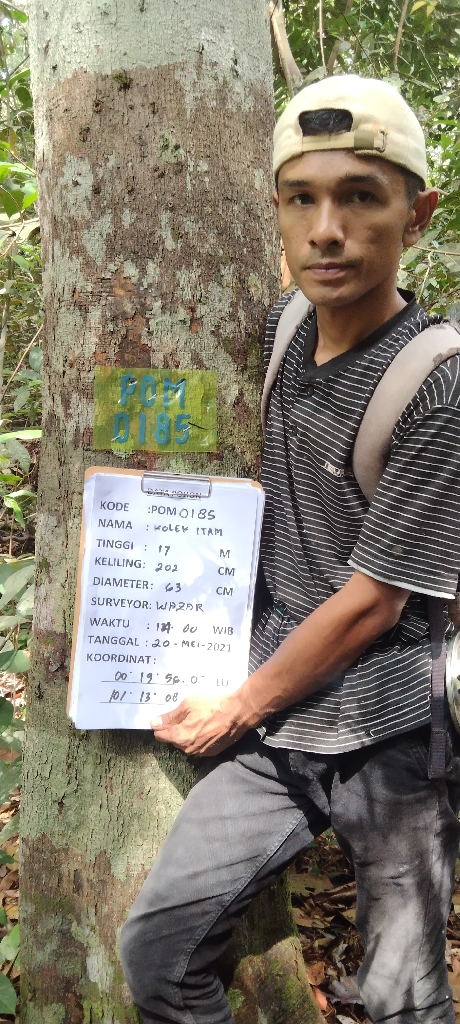 POM
0185
DATA POHON
KODE :POM 0185
NAMA : KOLEK ITAM
TINGGI : 17 M
KELILING: 202 CM
DIAMETER: 63 CM
SURVEYOR:
WAKTU : 00 WIB
TANGGAL : 20 - MEI - 2021
KOORDINAT:
00° 19' 56. 0" LU
101° 13' 08